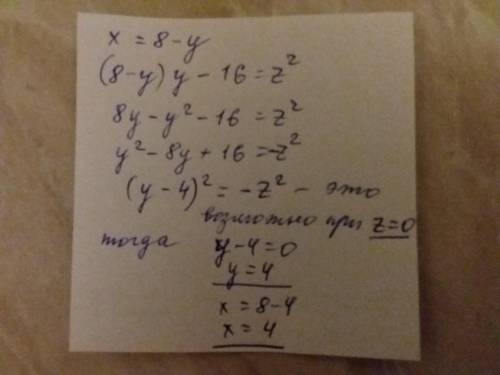 x = 8 - y
(8-y) y - 16 = z²
8y - y² - 16 = z²
y² - 8y + 16 = -z²
(y - 4)² = -z² - это
возможно при z=0
тогда y-4=0
y=4
x = 8-4
x = 4